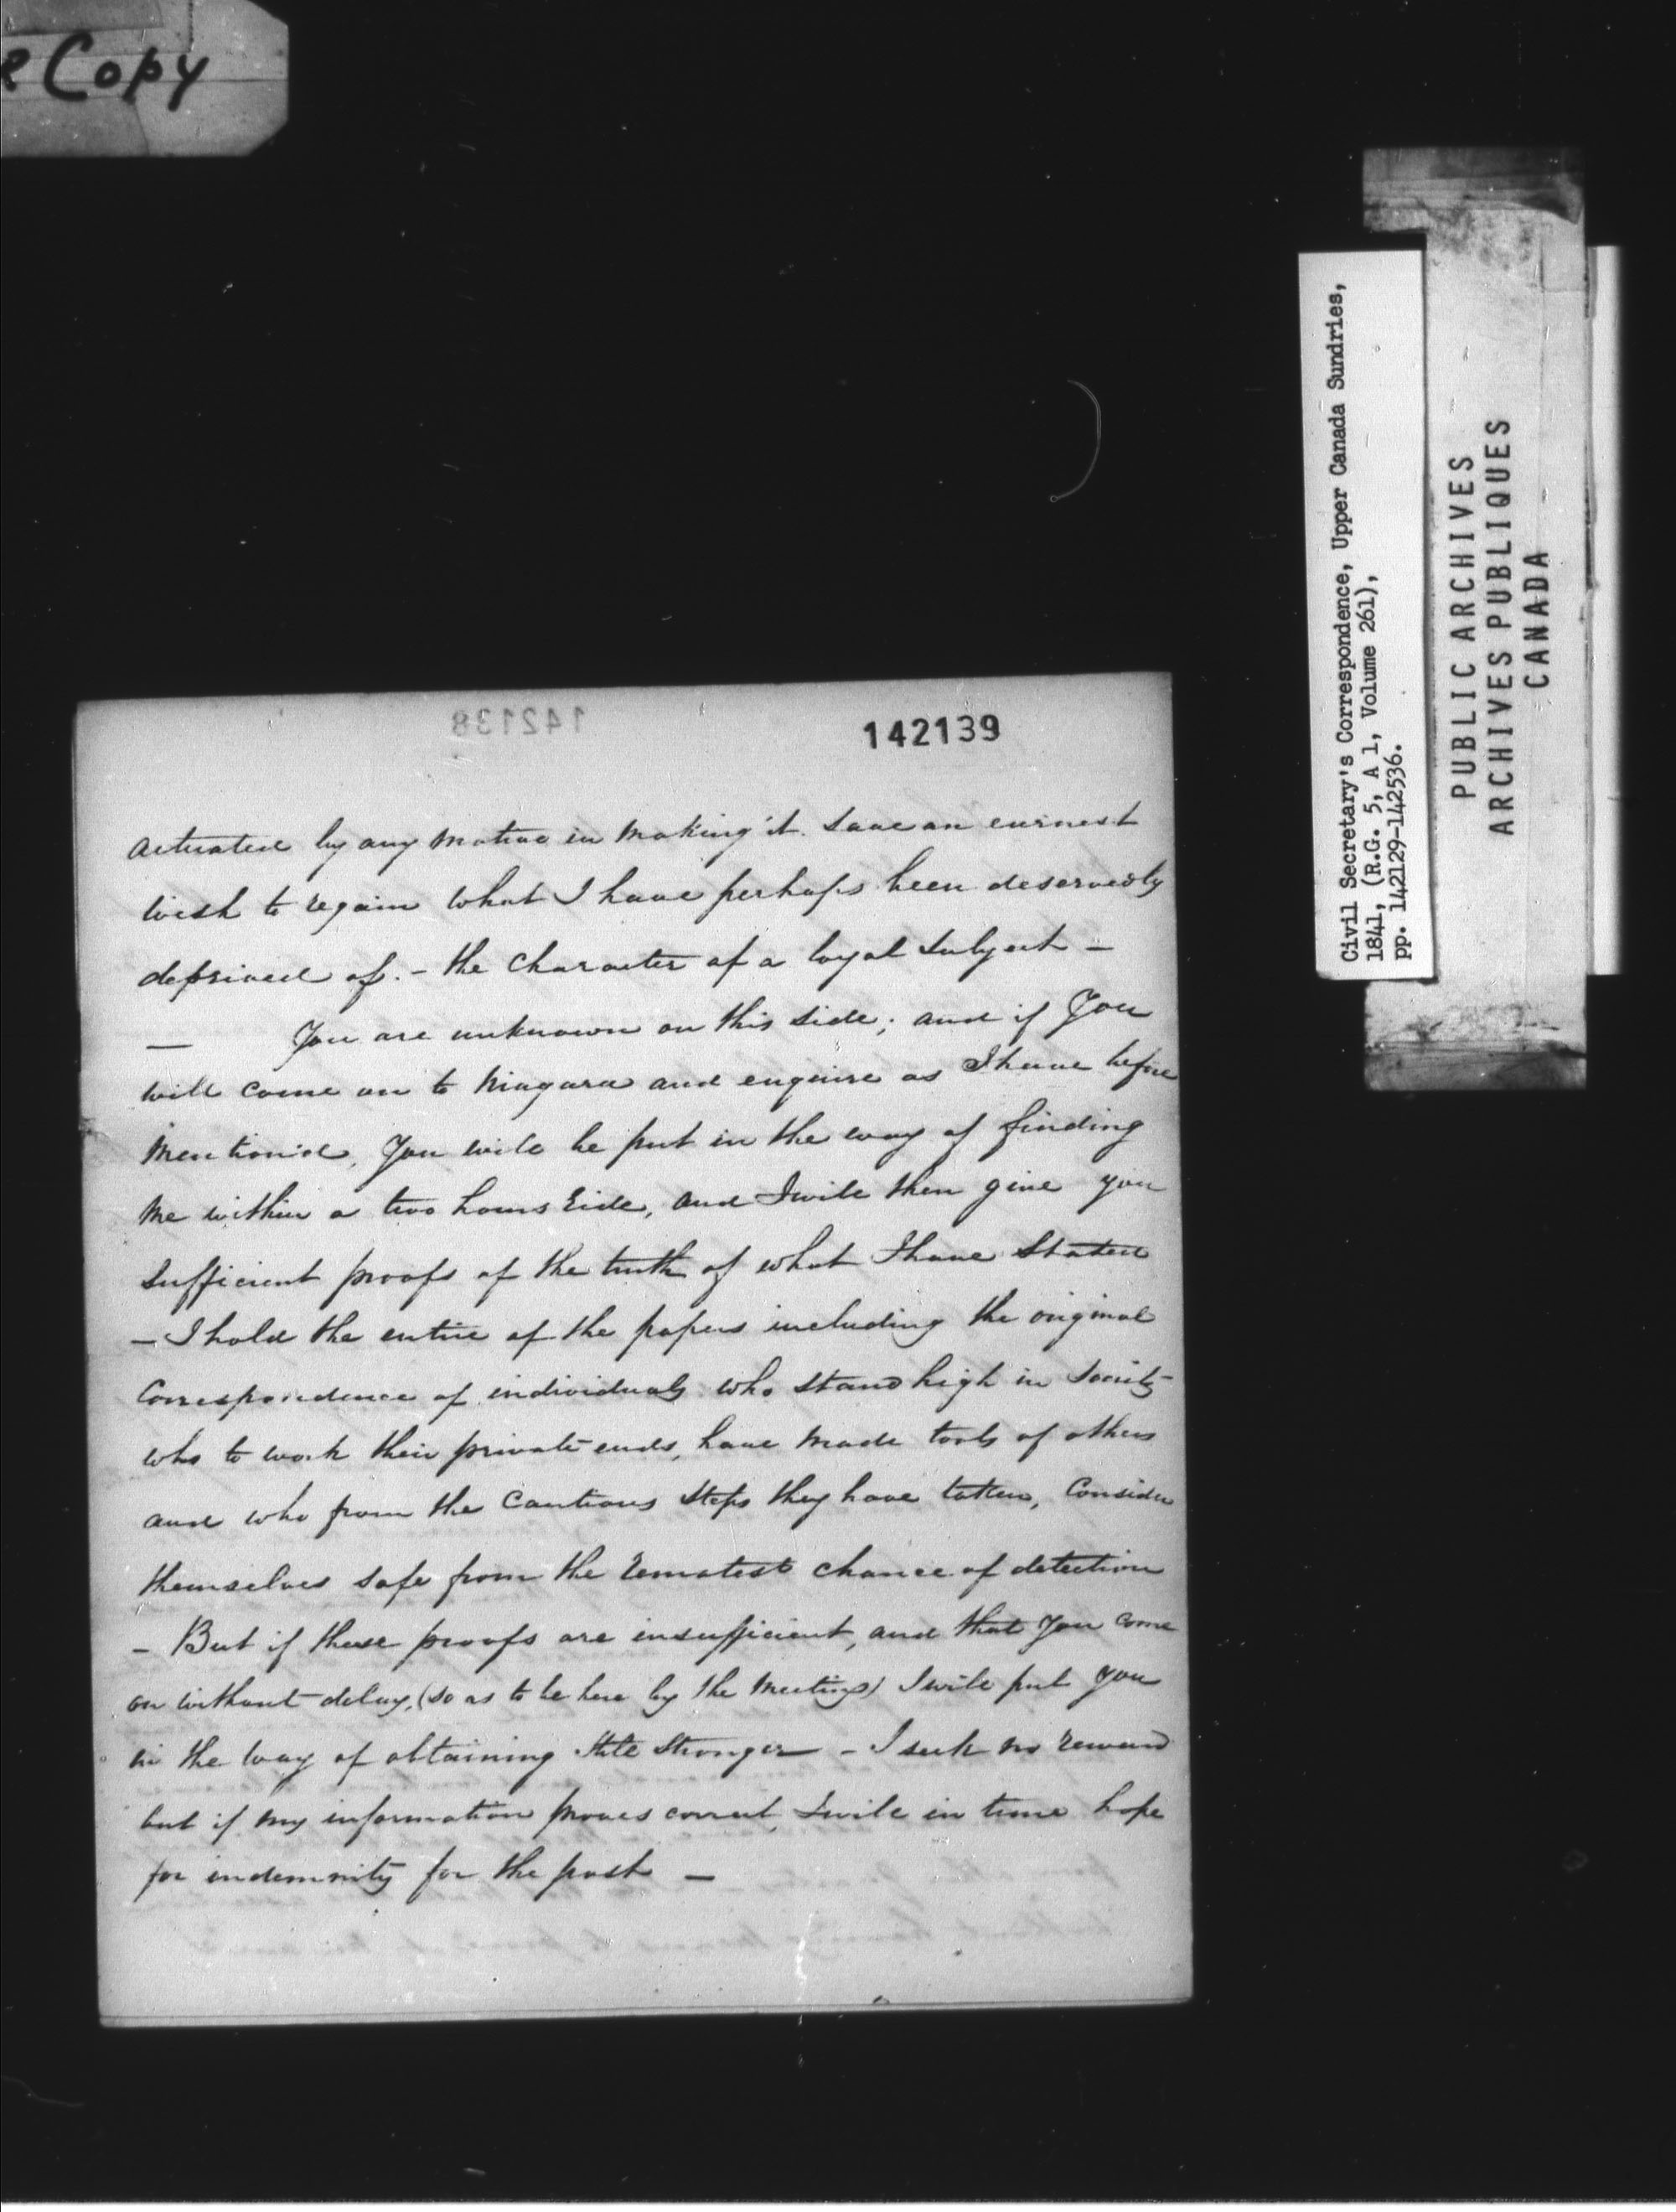 e Copy
142138
142139
actuated by any motive in making it. Save an earnest
wish to regain what I have perhaps been deservedly
deprived of. - the Character of a loyal Subject -
— You are unknown on this side; and if You
will come on to Niagara and enquire as I have before
Mention'd, You will be put in the way of finding
Me within a two hours ride, and I will then give you
Sufficient proofs of the truth of what I have Stated
- I hold the entire of the papers including the original
Correspondence of individuals who stand high in Society
who to work their private ends, have made tools of others
and who from the Cautious Steps they have taken, Consider
themselves safe from the remotest chance of detection
- But if these proofs are insufficient, and that You come
on without delay, (so as to be here by the Meetings) I will put You
in the way of obtaining Still Stronger - I seek no reward
but if my information proves correct, I will in time hope
for indemnity for the past —
Civil Secretary's Correspondence, Upper Canada Sundries,
1841, (R.G. 5, A 1, Volume 261),
pp. 142129-142536.
PUBLIC ARCHIVES
ARCHIVES PUBLIQUES
CANADA